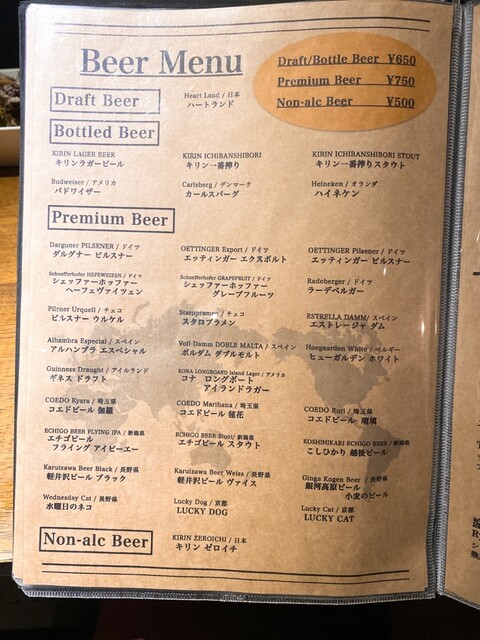 Beer Menu
Draft/Bottle Beer ¥650
Premium Beer ¥750
Non-alc Beer ¥500
Draft Beer
Heart Land / 日本
ハートランド
Bottled Beer
KIRIN LAGER BEER
キリンラガービール
KIRIN ICHIBANSHIBORI
キリン一番搾り
KIRIN ICHIBANSHIBORI STOUT
キリン一番搾りスタウト
Budweiser / アメリカ
バドワイザー
Carlsberg / デンマーク
カールスバーグ
Heineken / オランダ
ハイネケン
Premium Beer
Darguner PILSENER / ドイツ
ダルグナー ピルスナー
OETTINGER Export / ドイツ
エッティンガー エクスポルト
OETTINGER Pilsener / ドイツ
エッティンガー ピルスナー
Schoefferhofer HEFEWEIZEN / ドイツ
シェッファーホッファー
ヘーフェヴァイツェン
Schoefferhofer GRAPEFRUIT / ドイツ
シェッファーホッファー
グレープフルーツ
Radeberger / ドイツ
ラーデベルガー
Pilsner Urquell / チェコ
ピルスナー ウルケル
Staropramen / チェコ
スタロプラメン
ESTRELLA DAMM / スペイン
エストレージャ ダム
Alhambra Especial / スペイン
アルハンブラ エスペシャル
Voll-Damm DOBLE MALTA / スペイン
ボルダム ダブルモルト
Hoegaarden White / ベルギー
ヒューガルデン ホワイト
Guinness Draught / アイルランド
ギネス ドラフト
KONA LONGBOARD Island Lager / アメリカ
コナ ロングボード
アイランドラガー
COEDO Kyara / 埼玉県
コエドビール 伽羅
COEDO Marihana / 埼玉県
コエドビール 毬花
COEDO Ruri / 埼玉県
コエドビール 瑠璃
ECHIGO BEER FLYING IPA / 新潟県
エチゴビール
フライング アイピーエー
ECHIGO BEER Stout / 新潟県
エチゴビール スタウト
KOSHIHIKARI ECHIGO BEER / 新潟県
こしひかり 越後ビール
Karuizawa Beer Black / 長野県
軽井沢ビール ブラック
Karuizawa Beer Weiss / 長野県
軽井沢ビール ヴァイス
Ginga Kogen Beer / 長野県
銀河高原ビール
小麦のビール
Wednesday Cat / 長野県
水曜日のネコ
Lucky Dog / 京都
LUCKY DOG
Lucky Cat / 京都
LUCKY CAT
Non-alc Beer
KIRIN ZEROICHI / 日本
キリン ゼロイチ